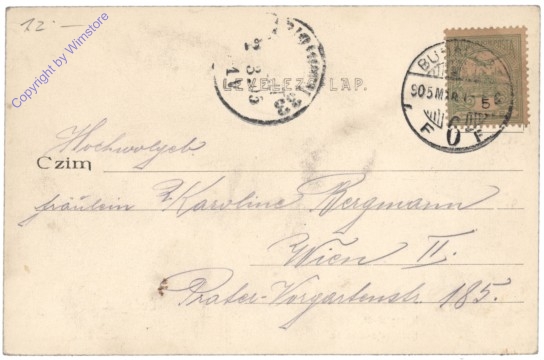 12.—
Copyright by Wimstore
BUDAPEST
905 MAR
5
F F
LEVELEZŐ-LAP.
Hochwolgeb.
Czim
fräulein Karoline Bergmann
Wien II.
Prater-Vorgartenstr. 185.